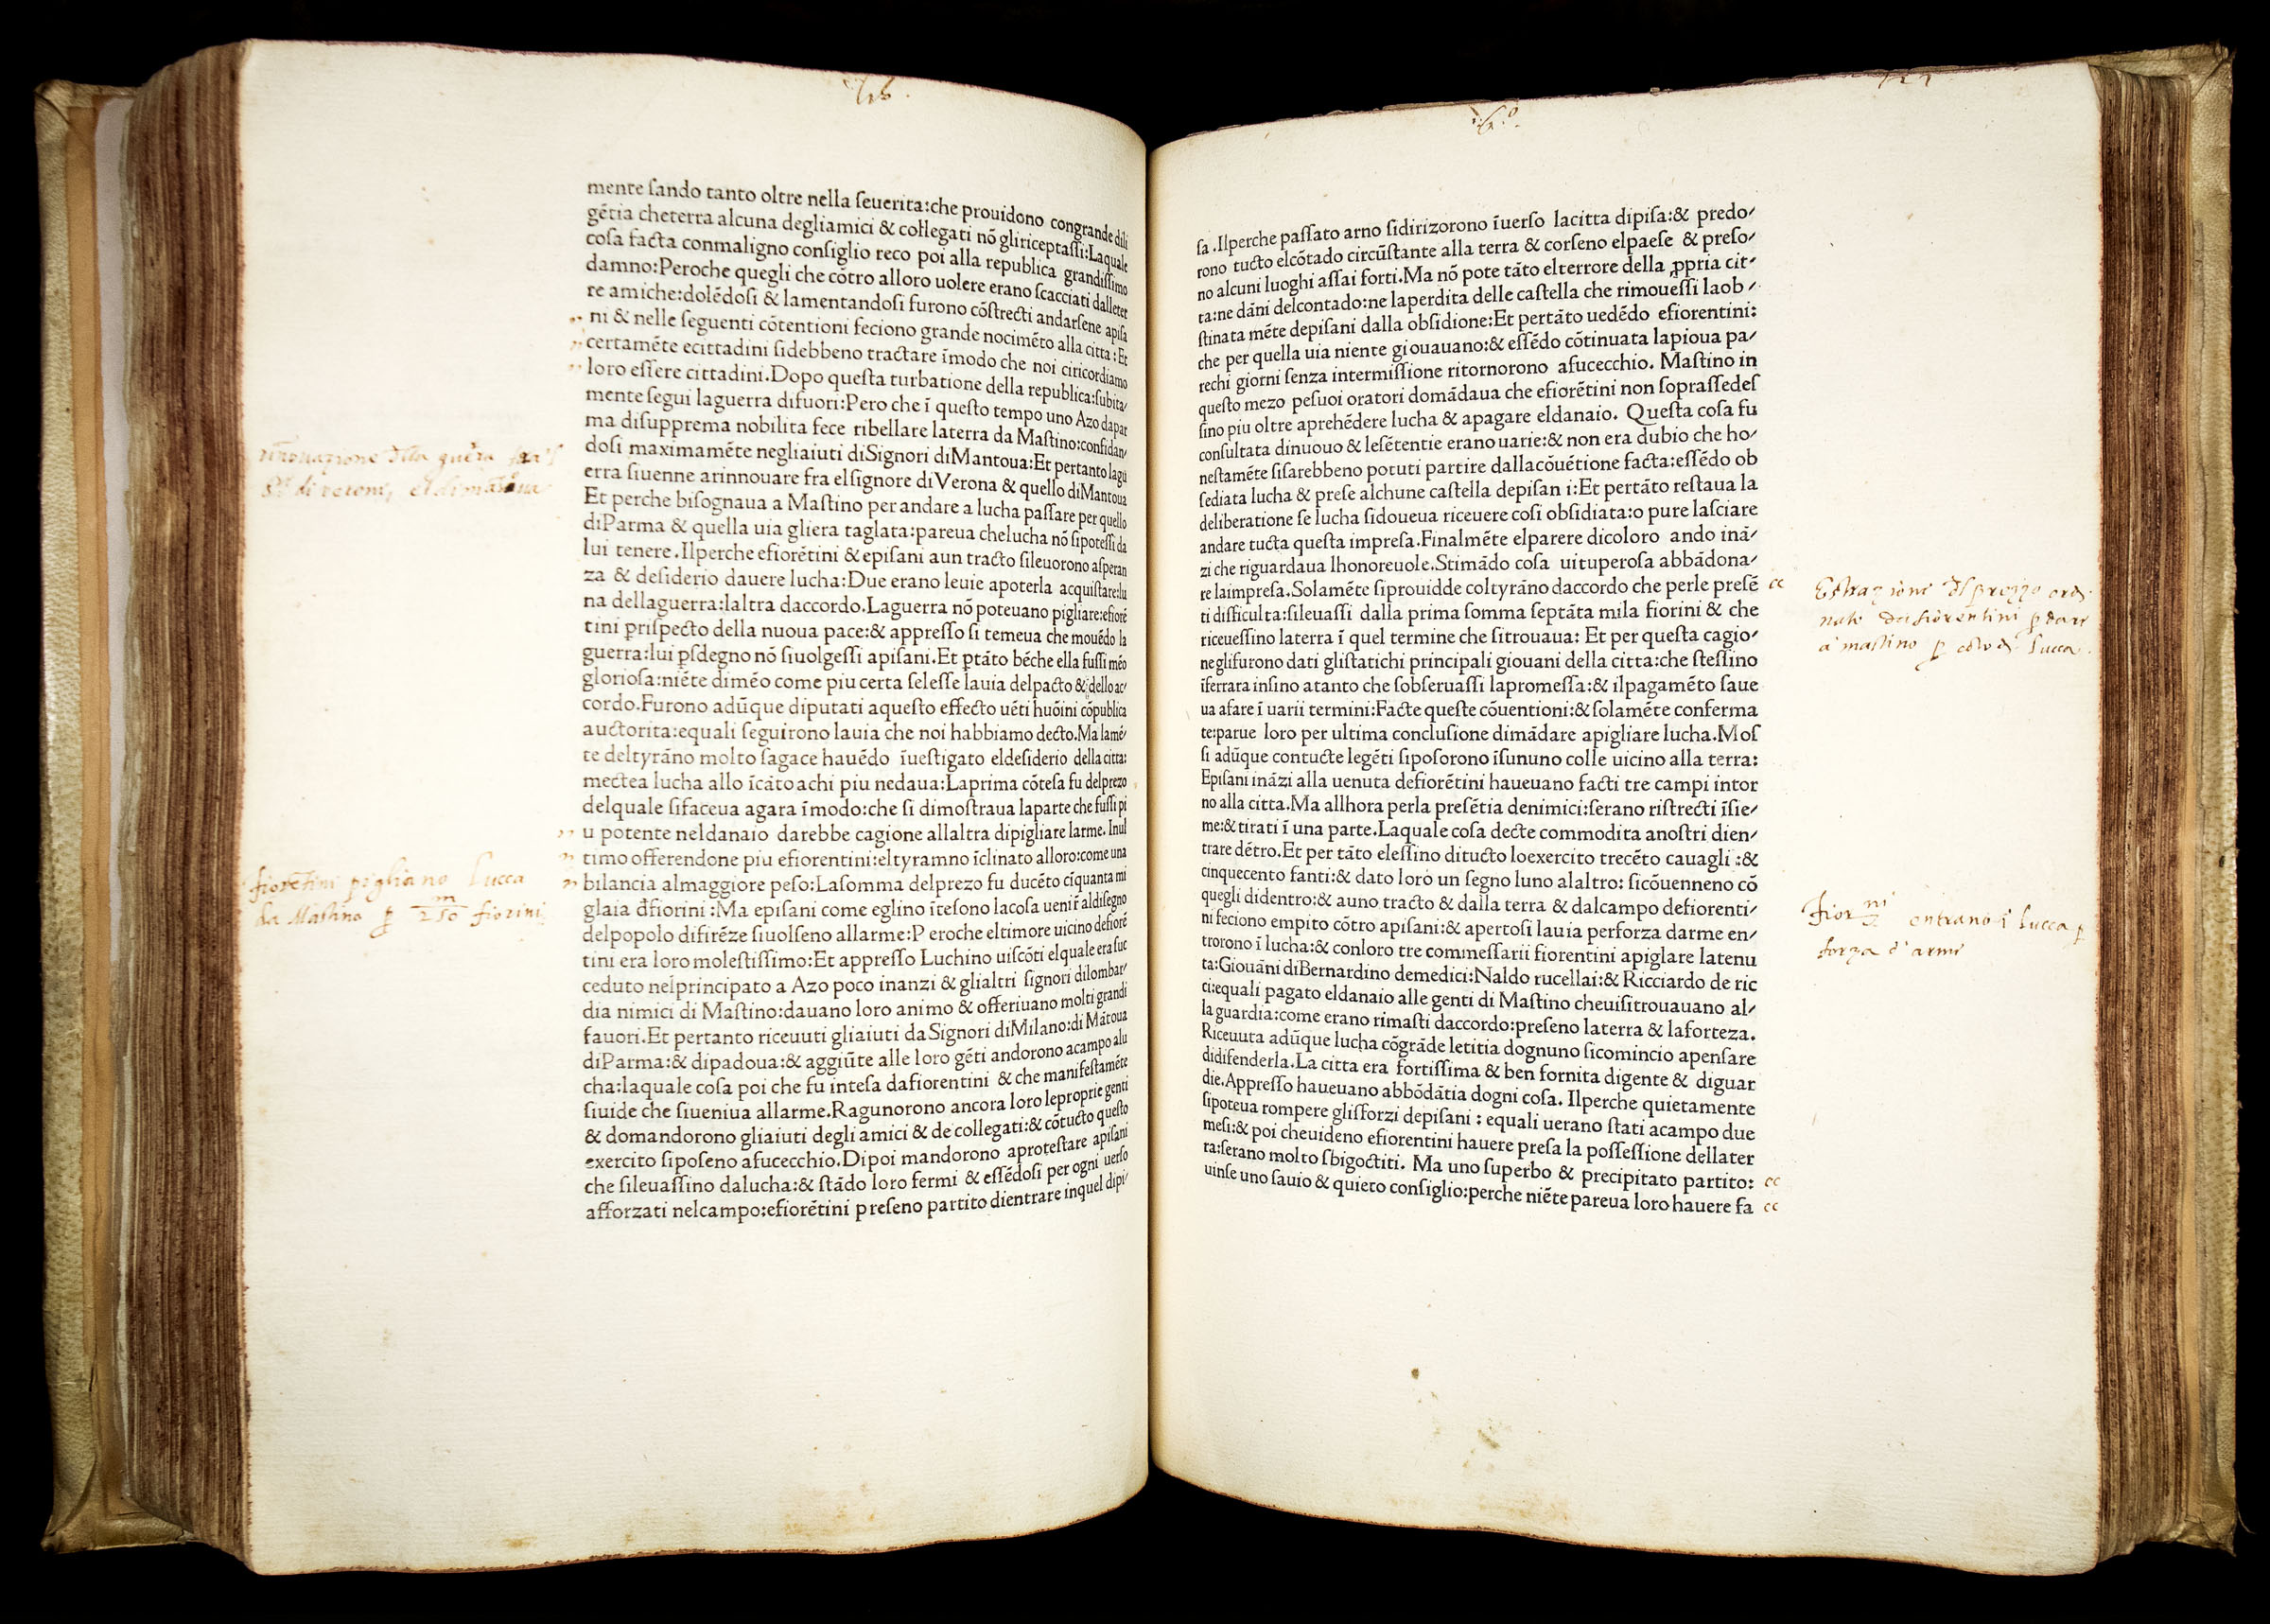 mente ſando tanto oltre nella ſeuerita:che prouidono congrande dili
gētia cheterra alcuna degliamici & collegati nō gliriceptaſſi:Laquale
coſa facta conmaligno conſiglio reco poi alla republica grandiſſimo
damno:Peroche quegli che cōtro alloro uolere erano ſcacciati dalleter
re amiche:dolēdoſi & lamentandoſi furono cōſtrecti andarſene apiſa
ni & nelle ſeguenti cōtentioni feciono grande nocimēto alla citta: Et
certamēte ecittadini ſidebbeno tractare īmodo che noi ciricordiamo
loro eſſere cittadini.Dopo queſta turbatione della republica:ſubita/
mente ſegui laguerra difuori:Pero che ī queſto tempo uno Azo dapar
ma diſupprema nobilita fece ribellare laterra da Maſtino:confidan/
doſi maximamēte negliaiuti diSignori diMantoua:Et pertanto lagu
erra ſiuenne arinnouare fra elſignore diVerona & quello diMantoua
Et perche biſognaua a Maſtino per andare a lucha paſſare per quello
diParma & quella uia gliera taglata:pareua chelucha nō ſipoteſſi da
lui tenere.Ilperche efiorētini & epiſani aun tracto ſileuorono aſperan
za & deſiderio dauere lucha:Due erano leuie apoterla acquiſtare:lu
na dellaguerra:laltra daccordo.Laguerra nō poteuano pigliare:efiorē
tini priſpecto della nuoua pace:& appreſſo ſi temeua che mouēdo la
guerra:lui p̱ſdegno nō ſiuolgeſſi apiſani.Et p̱tāto bēche ella fuſſi mēo
glorioſa:niēte dimēo come piu certa ſeleſſe lauia delpacto & dello ac/
cordo.Furono adūque diputati aqueſto effecto uēti huōini cōpublica
auctorita:equali ſeguirono lauia che noi habbiamo decto.Ma lamē/
te deltyrāno molto ſagace hauēdo īueſtigato eldeſiderio della citta:
mectea lucha allo īcāto achi piu nedaua:Laprima cōteſa fu delprezo
delquale ſifaceua agara īmodo:che ſi dimoſtraua laparte che fuſſi pi
u potente neldanaio darebbe cagione allaltra dipigliare larme. Inul
timo offerendone piu efiorentini:eltyramno īclinato alloro:come una
bilancia almaggiore peſo:Laſomma delprezo fu ducēto cīquanta mi
glaia d̄fiorini :Ma epiſani come eglino īteſono lacoſa uenir̄ aldiſegno
delpopolo difirēze ſiuolſeno allarme:P eroche eltimore uicino defiorē
tini era loro moleſtiſſimo:Et appreſſo Luchino uiſcōti elquale era ſuc
ceduto nelprincipato a Azo poco inanzi & glialtri ſignori dilombar/
dia nimici di Maſtino:dauano loro animo & offeriuano molti grandi
fauori.Et pertanto riceuuti gliaiuti daSignori diMilano:di Mātoua
diParma:& dipadoua:& aggiūte alle loro gēti andorono acampo alu
cha:laquale coſa poi che fu inteſa dafiorentini & che manifeſtamēte
ſiuide che ſiueniua allarme.Ragunorono ancora loro leproprie genti
& domandorono gliaiuti degli amici & de collegati:& cōtucto queſto
exercito ſipoſeno afucecchio.Dipoi mandorono aproteſtare apiſani
che ſileuaſſino dalucha:& ſtādo loro fermi & eſſēdoſi per ogni uerſo
afforzati nelcampo:efiorētini preſeno partito dientrare inquel dipi/
rinouazione
fiorētini pigliano Lucca
da Maſtino p̱ 250 fiorini
ſa .Ilperche paſſato arno ſidirizorono īuerſo lacitta dipiſa:& predo/
rono tucto elcōtado circūſtante alla terra & corſeno elpaeſe & preſo/
no alcuni luoghi aſſai forti.Ma nō pote tāto elterrore della p̱pria cit/
ta:ne dāni delcontado:ne laperdita delle caſtella che rimoueſſi laob /
ſtinata mēte depiſani dalla obſidione:Et pertāto uedēdo efiorentini:
che per quella uia niente giouauano:& eſſēdo cōtinuata lapioua pa/
rechi giorni ſenza intermiſſione ritornorono afucecchio. Maſtino in
queſto mezo peſuoi oratori domādaua che efiorētini non ſopraſſedeſ
ſino piu oltre aprehēdere lucha & apagare eldanaio. Queſta coſa fu
conſultata dinuouo & leſētentie erano uarie:& non era dubio che ho/
neſtamēte ſiſarebbeno potuti partire dallacōuētione facta:eſſēdo ob
ſediata lucha & preſe alchune caſtella depiſan i:Et pertāto reſtaua la
deliberatione ſe lucha ſidoueua riceuere coſi obſidiata:o pure laſciare
andare tucta queſta impreſa.Finalmēte elparere dicoloro ando inā/
zi che riguardaua lhonoreuole.Stimādo coſa uituperoſa abbādona/
re laimpreſa.Solamēte ſiprouidde coltyrāno daccordo che perle preſē
ti difficulta:ſileuaſſi dalla prima ſomma ſeptāta mila fiorini & che
riceueſſino laterra ī quel termine che ſitrouaua: Et per queſta cagio/
ne glifurono dati gliſtatichi principali giouani della citta:che ſteſſino
īferrara inſino atanto che ſobſeruaſſi lapromeſſa:& ilpagamēto ſaue
ua afare ī uarii termini:Facte queſte cōuentioni:& ſolamēte conferma
te:parue loro per ultima concluſione dimādare apigliare lucha.Moſ
ſi adūque contucte legēti ſipoſorono īſununo colle uicino alla terra:
Epiſani ināzi alla uenuta defiorētini haueuano facti tre campi intor
no alla citta.Ma allhora perla preſētia denimici:ſerano riſtrecti īſie/
me:& tirati ī una parte.Laquale coſa decte commodita anoſtri dien/
trare dētro.Et per tāto eleſſino ditucto loexercito trecēto cauagli :&
cinquecento fanti:& dato loro un ſegno luno alaltro: ſicōuenneno cō
quegli didentro:& auno tracto & dalla terra & dalcampo defiorenti/
ni feciono empito cōtro apiſani:& apertoſi lauia perforza darme en/
trorono ī lucha:& conloro tre commeſſarii fiorentini apiglare latenu
ta:Giouāni diBernardino demedici:Naldo rucellai:& Ricciardo de ric
ci:equali pagato eldanaio alle genti di Maſtino cheuiſitrouauano al/
la guardia:come erano rimaſti daccordo:preſeno laterra & laforteza.
Riceuuta adūque lucha cōgrāde letitia dognuno ſicomincio apenſare
didifenderla.La citta era fortiſſima & ben fornita digente & diguar
die.Appreſſo haueuano abbōdātia dogni coſa. Ilperche quietamente
ſipoteua rompere gliſforzi depiſani : equali uerano ſtati acampo due
meſi:& poi cheuideno efiorentini hauere preſa la poſſeſſione dellater
ra:ſerano molto ſbigoctiti. Ma uno ſuperbo & precipitato partito:
uinſe uno ſauio & quieto conſiglio:perche niēte pareua loro hauere fa
a maſtino p̱ Lucca
entrano ī Lucca p̱
forza d'arme